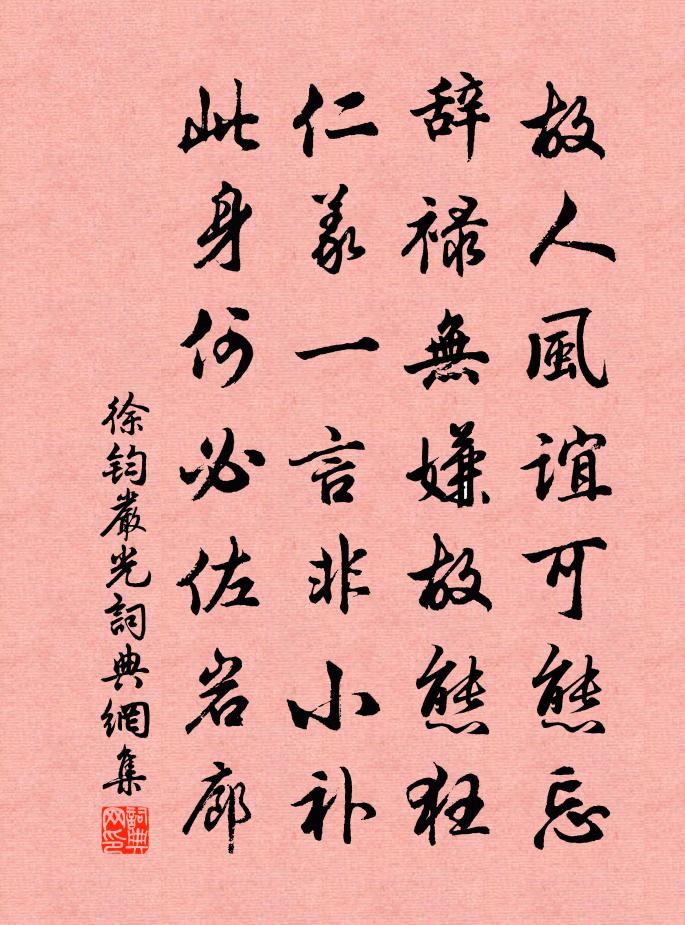 故人風誼可態忘
辞禄無嫌故態狂
仁義一言非小补
此身何必佐岩廊
徐鈞嚴光詞典網集
詞典网印